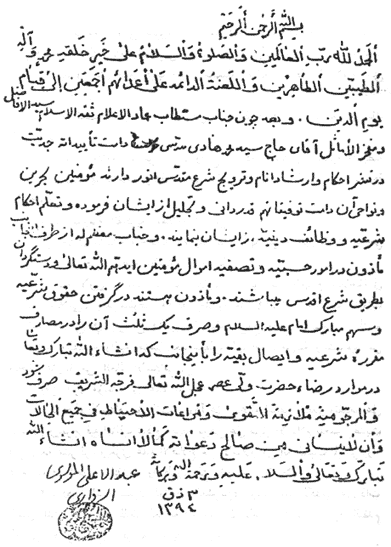 بسم الله الرحمن الرحیم
الحمد لله رب العالمین والصلوة والسلام علی خیر خلقه محمد وآله
الطیبین الطاهرین واللعنة الدائمه علی اعدائهم اجمعین الی قیام
یوم الدین. وبعد چون جناب مستطاب عماد الاعلام ثقة الاسلام سید الافاضل
وفخر الاماثل آقای حاج سید محمد هادی مدرسی دامت تأییداته جدیت
در نشر احکام وارشاد انام وترویج شرع مقدس انور دارند مؤمنین بحرین
ونواحی آن دامت توفیقاتهم قدردانی وتجلیل از ایشان فرموده وتعلم احکام
شرعیه ووظائف دینیه از ایشان بنمایند. وجناب معظم له از طرف اینجانب
مأذون در امور حسبیه وتصفیه اموال مؤمنین ایدهم الله تعالی ودستگردان
بطریق شرع اقدس میباشند. ومأذون هستند در گرفتن حقوق شرعیه
وسهم مبارک امام علیه السلام وصرف یک ثلث آن را در مصارف
مقرره شرعیه وایصال بقیه را باینجانب که انشاء الله تبارک وتعالی
در موارد رضاء حضرت ولی عصر عجل الله تعالی فرجه الشریف صرف شود
والمرجو منه ملازمة التقوی ومراعات الاحتیاط فی جمیع الحالات
وان لا ینسانی من صالح دعواته کما لا انساه انشاء الله
تبارک وتعالی والسلام علیه ورحمة الله وبرکاته
عبد الاعلی الموسوی
السبزواری
۳ ذق
۱۳۹۴